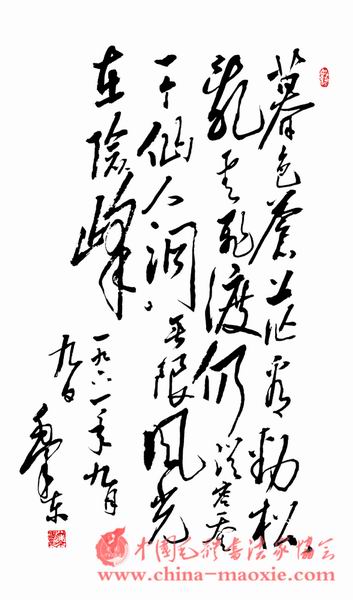 暮色蒼茫看勁松
亂云飛渡仍從容天生
一个仙人洞无限風光
在險峰
一九六一年九月
九日
毛澤东
中国毛体书法家协会
www.china-maoxie.com